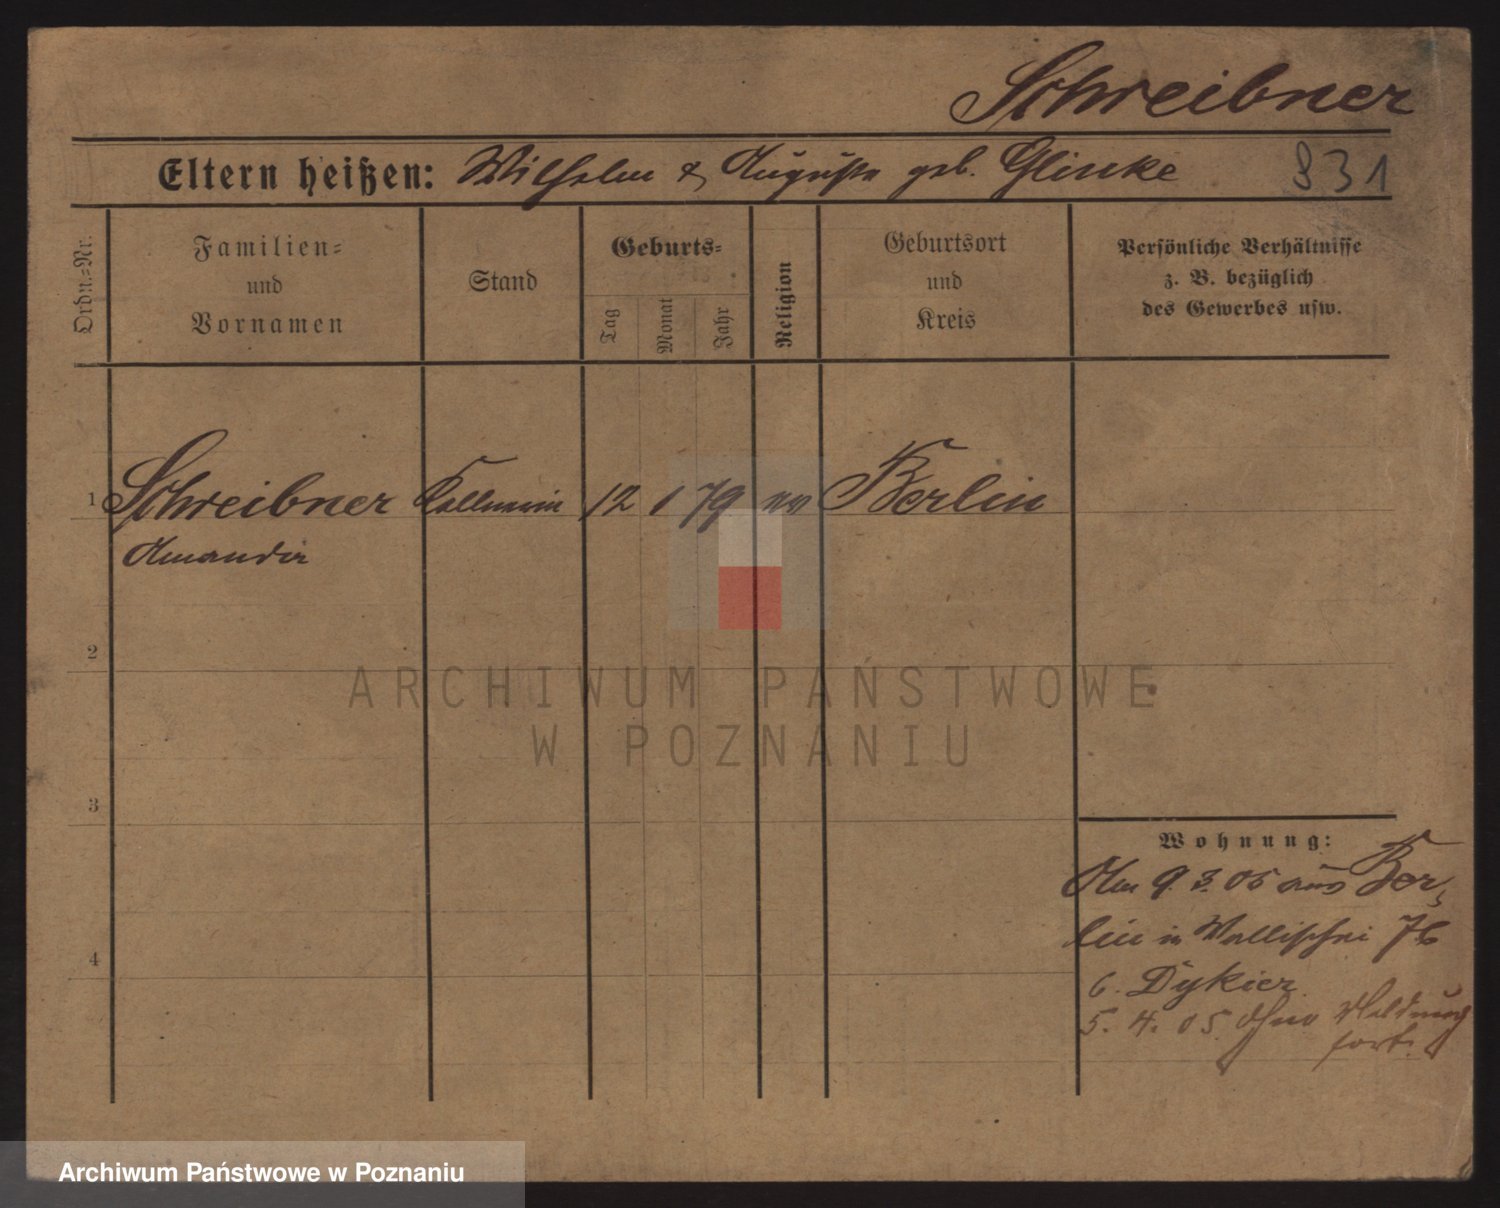 Schreibner
Eltern heißen: Wilhelm & Auguste geb. Glinke 831
Ordn.=Nr.
Familien=
und
Vornamen
Stand
Geburts=
Tag
Monat
Jahr
Religion
Geburtsort
und
Kreis
Persönliche Verhältnisse
z. B. bezüglich
des Gewerbes usw.
1 Schreibner Kellnerin 12 1 79 ev Berlin
Amanda
2
3
4
Wohnung:
Am 9. 3. 05 aus Ber-
lin in Wallischei 76
b. Dykier
5. 4. 05. ohne Meldung
fort.
ARCHIWUM PAŃSTWOWE
W POZNANIU
Archiwum Państwowe w Poznaniu